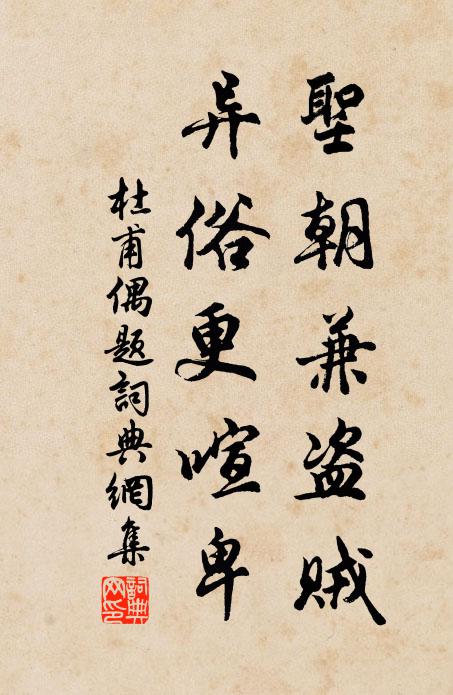 聖朝兼盗賊
异俗更喧卑
杜甫偶题詞典網集
詞典網印